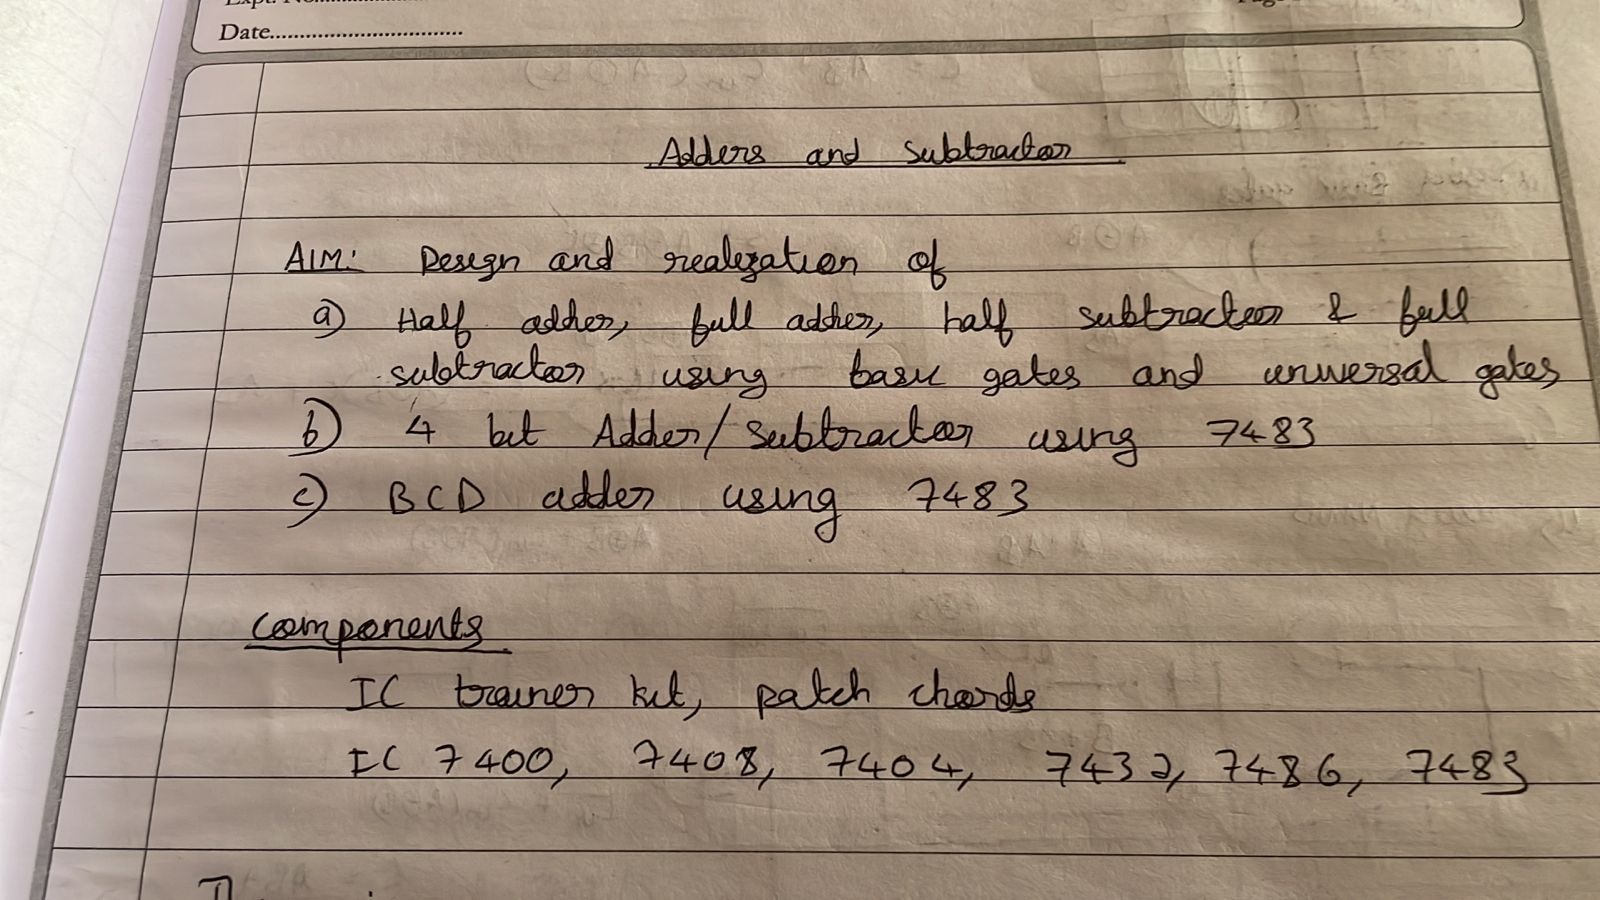 Date
Adders and Subtractor
AIM: Design and realization of
a) Half adder, full adder, half subtractor & full
subtractor using basic gates and universal gates
b) 4 bit Adder/Subtractor using 7483
c) BCD adder using 7483
Components
IC trainer kit, patch chords
IC 7400, 7408, 7404, 7432, 7486, 7483